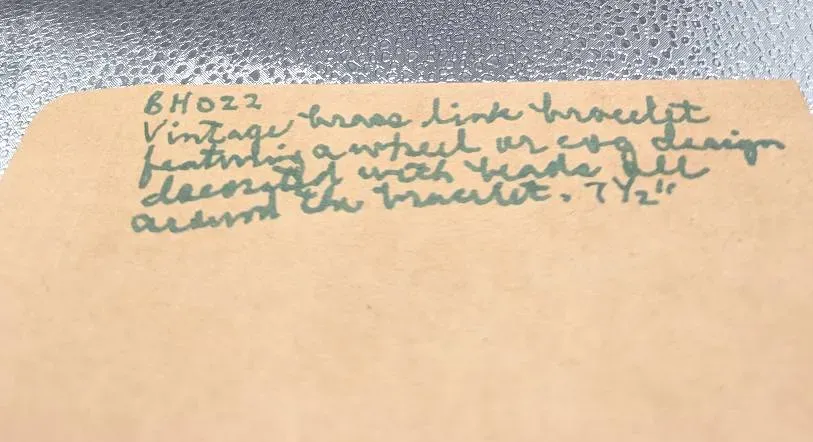 BH022
Vintage brass link bracelet
featuring a wheel or cog design
decorated with beads all
around the bracelet. 7 1/2"